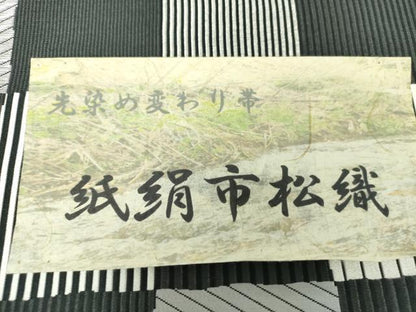 先染め変わり帯
紙絹市松織